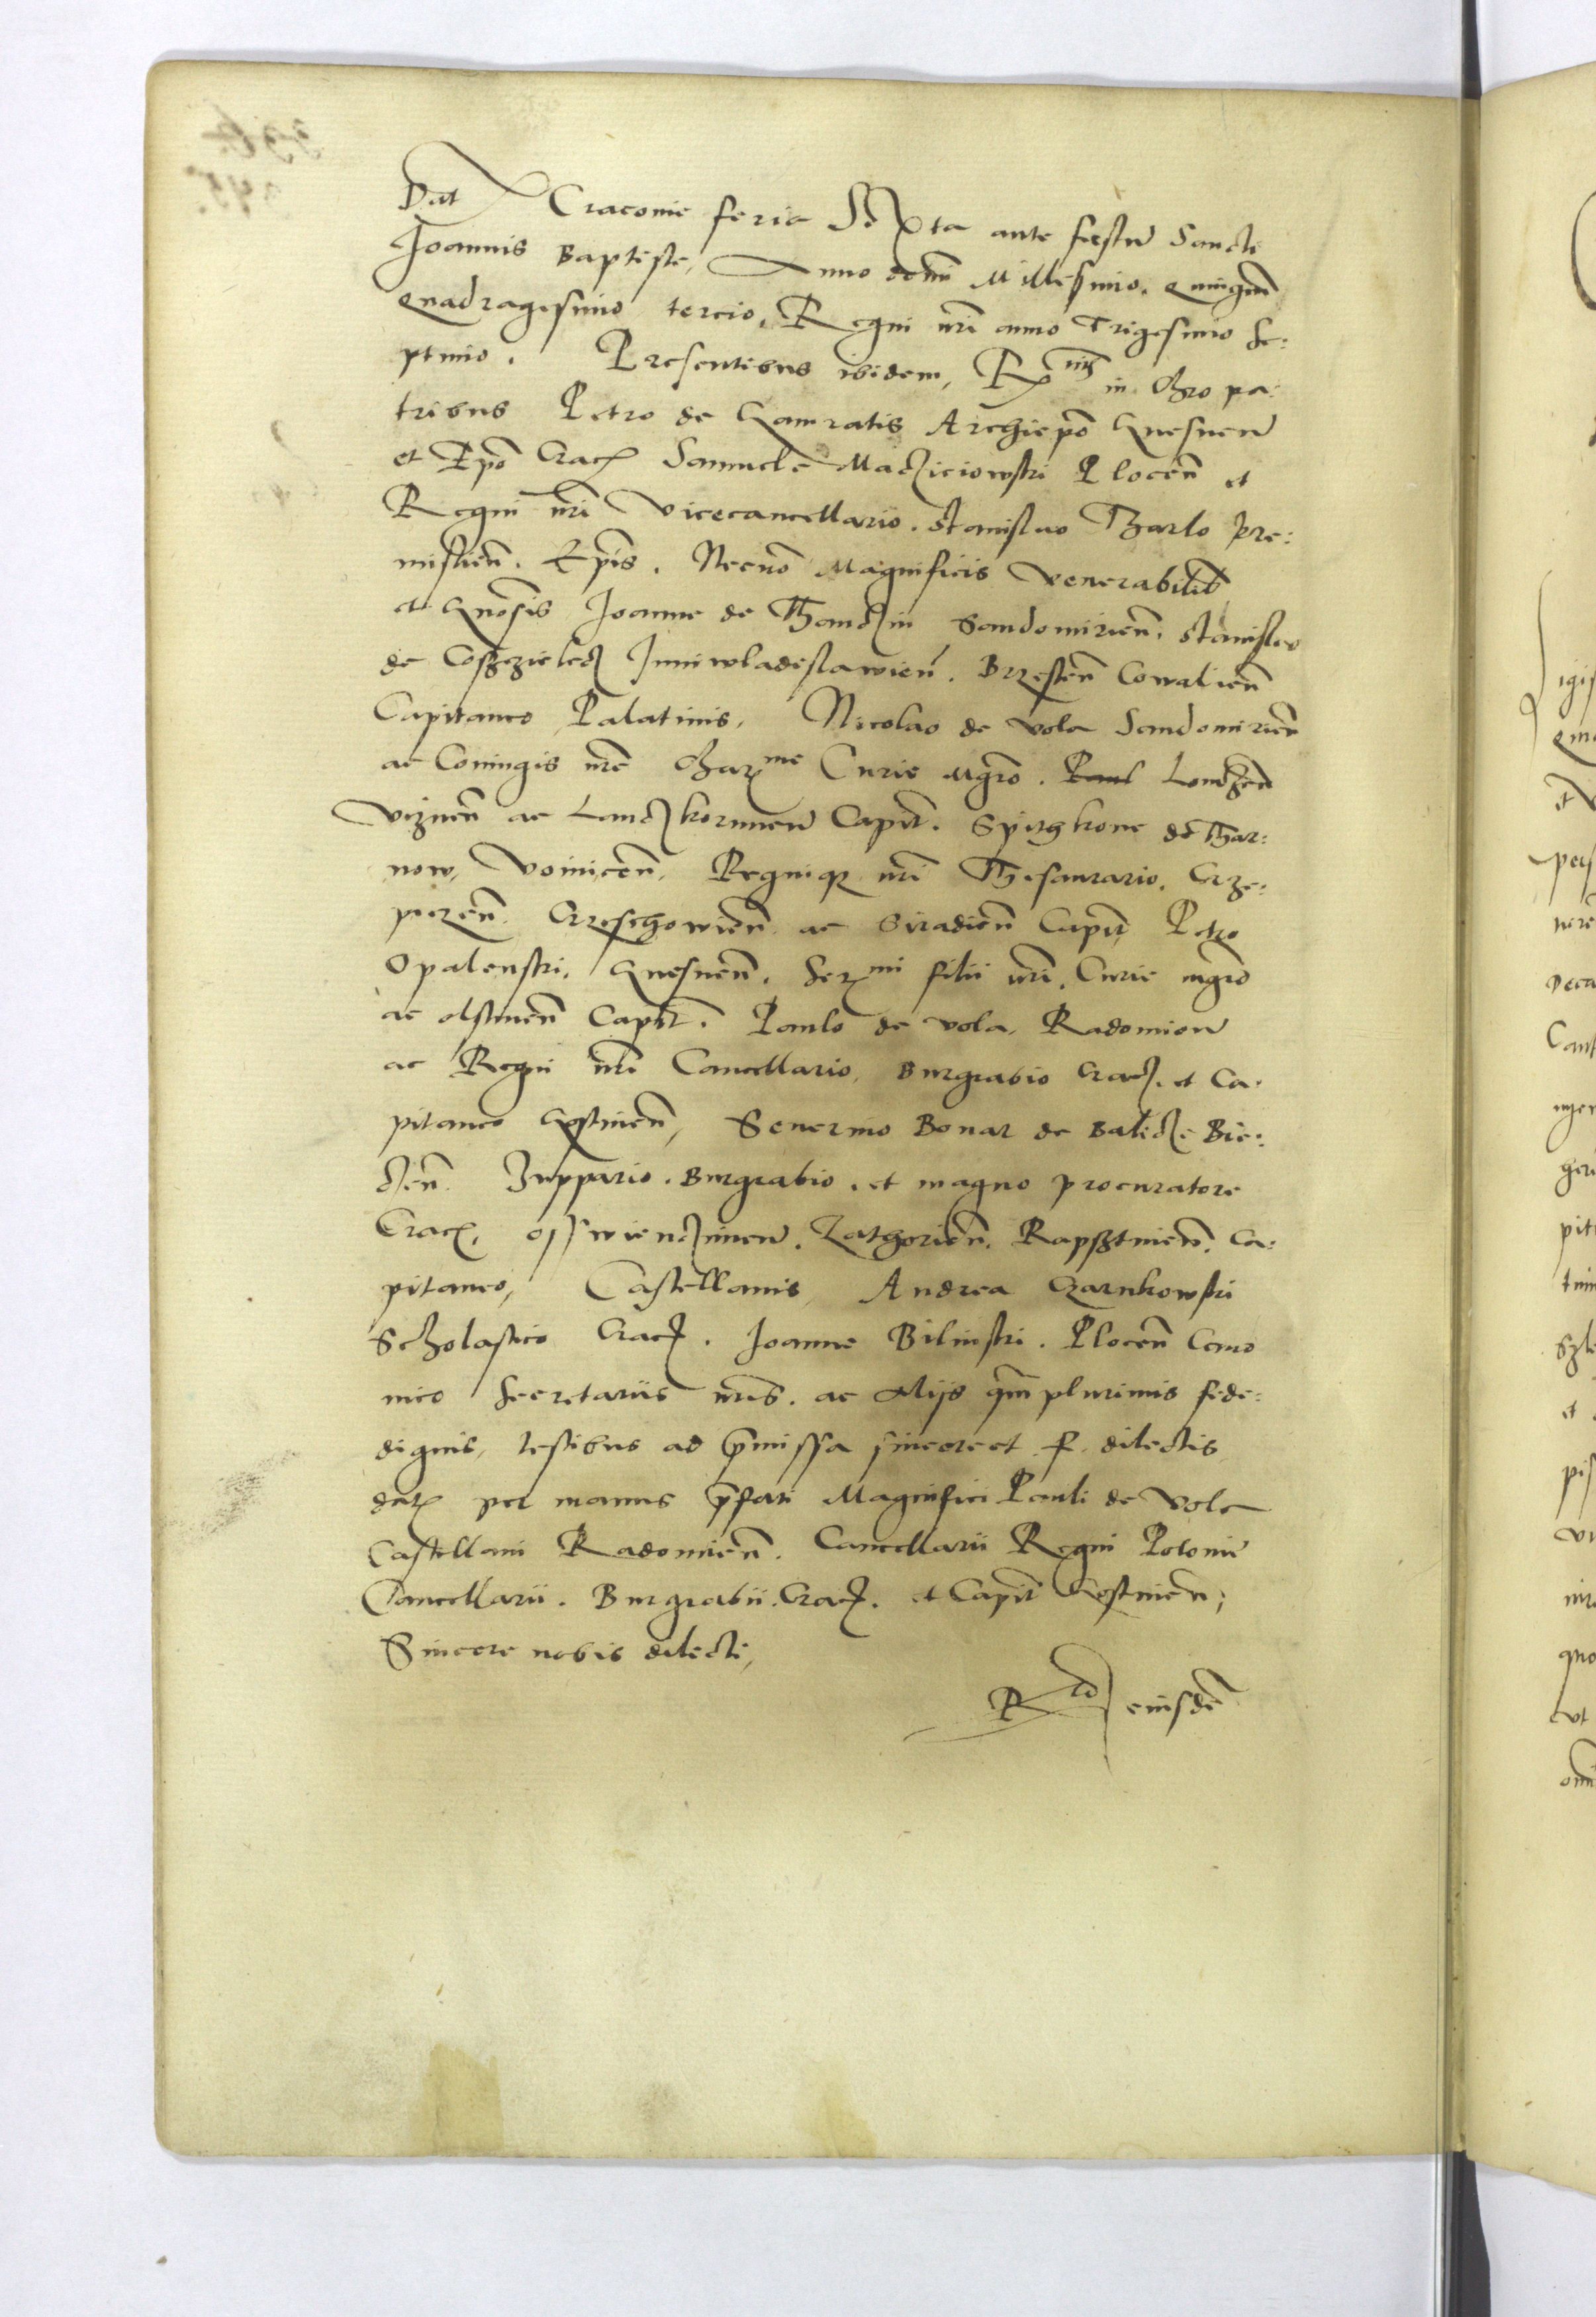 Dat Cracovie feria Sexta ante festū Sancti
Joannis Baptiste, Anno domī Millesimo. quingeñ
quadragesimo tercio, Regni nrī anno Trigesimo se:
ptimo. Presentibus ibidem, Rx mis in chro pa:
tribus Petro de Gamratis Archiepō Gnesneñ
et Epō Crac Samuele Macziciowski Ploceñ et
Regni nrī Vicecancellario. Stanislao Tharlo pre:
mislieñ. Epīs. Necnō Magnificis Venerabilib
et Gnosis Joanne de Thanczin Sandomirieñ. Stanislao
de Coszczielecz Juniwladeslawieñ. Brzesteñ Cowalieñ
Capitaneo Palatinis, Nicolao de Vola Sandomirieñ
ac Coniugis nrē Charme Curie Mgrō. Lomzeñ
Vizneñ ac Lanczkoruneñ Capit. Spithkone de Thar:
now, Voiniceñ, Regniq nrī Thesaurario, Crze:
piczeñ Crzeschowieñ ac Siradieñ Capit, Petro
Opalenski, Gnesneñ, Serx mi filii nrī, Curie mgrō
ac olstineñ Capit. Paulo de Vola, Radomieñ
ac Regni nrī Cancellario, Burgrabio Crac. et Ca:
pitaneo Gostineñ, Severino Bonar de Balicze Bie:
czeñ Zuppario. Burgrabio. et magno procuratore
Crac, osswienczimeñ. Zathorieñ. Rapsztineñ. Ca:
pitaneo, Castellanis, Andrea Czarnkowski
Scholastico Crac. Joanne Bilinski. Ploceñ Cano
nico Secretariis nrīs. ac Alijs qm plurimis fide:
dignis, testibus ad pmissa sincere et f. dilectis
datx per manus pfati Magnifici Pauli de Vola
Castellani Radomieñ. Cancellarii Regni Polonie
Cancellarii. Burgrabii. Crac. et Capit Gostineñ,
Sincere nobis dilecti,
Rō eiusdē